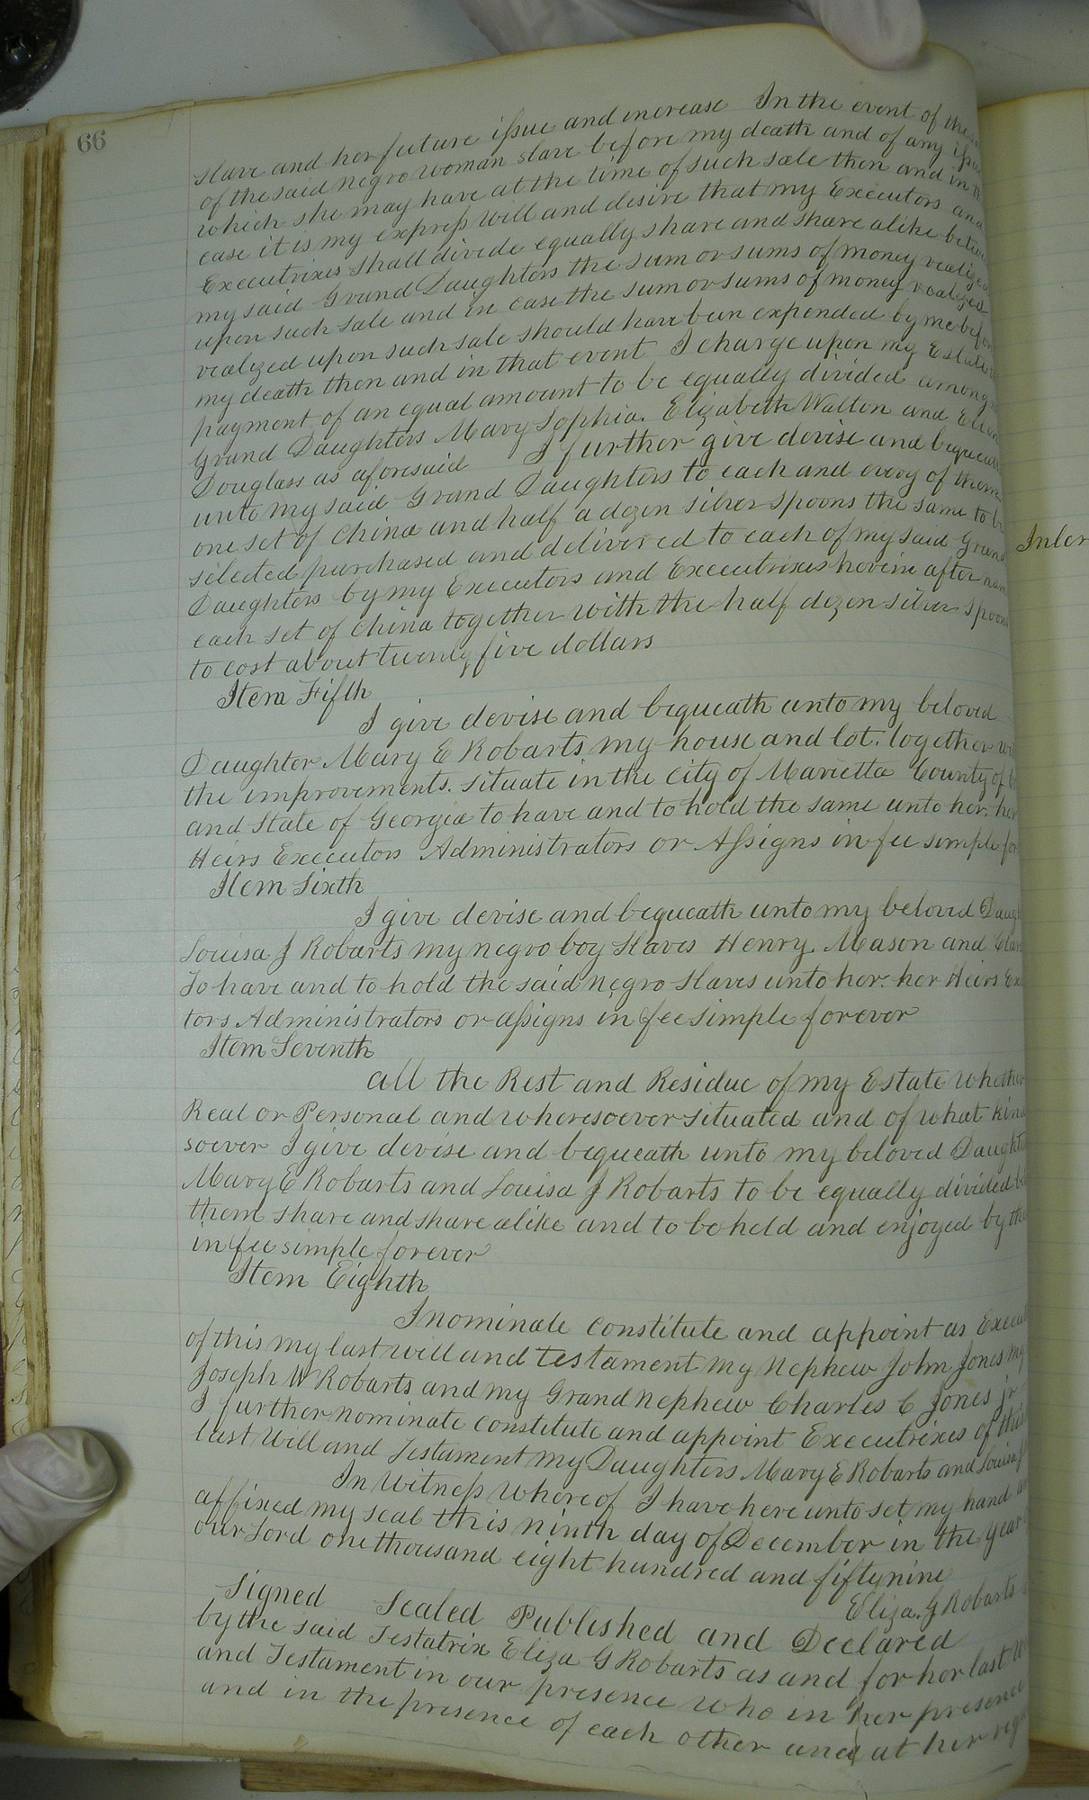 66
slave and her future issue and increase In the event of the
of the said negro woman slave before my death and of any issue
which she may have at the time of such sale then and in
case it is my express will and desire that my Executors and
Executrixes shall divide equally share and share alike between
my said Grand Daughters the sum or sums of money realized
upon such sale and in case the sum or sums of money realized
realized upon such sale should have been expended by me before
my death then and in that event I charge upon my Estate
payment of an equal amount to be equally divided among
Grand Daughters Mary Sophia. Elizabeth Walton and Ellen
Douglass as aforesaid I further give devise and bequeath
unto my said Grand Daughters to each and every of them
one set of China and half a dozen silver spoons the same to be
selected purchased and delivered to each of my said Grand
Daughters by my Executors and Executrixes herein after
each set of China together with the half dozen silver spoons
to cost about twenty five dollars
Item Fifth
I give devise and bequeath unto my beloved
Daughter Mary E Robarts my house and lot. together
the improvements. situate in the City of Marietta County of
and State of Georgia to have and to hold the same unto her. her
Heirs Executors Administrators or Assigns in fee simple
Item Sixth
I give devise and bequeath unto my beloved
Louisa J Robarts my negro boy Slaves Henry. Mason and
To have and to hold the said negro Slaves unto her. her Heirs
tors Administrators or assigns in fee simple forever
Item Seventh
all the Rest and Residue of my Estate whether
Real or Personal and wheresoever situated and of what kind
soever I give devise and bequeath unto my beloved
Mary E Robarts and Louisa J Robarts to be equally divided
them share and share alike and to be held and enjoyed by
in fee simple forever
Item Eighth
I nominate constitute and appoint as
of this my last will and testament my Nephew John Jones my
Joseph W Robarts and my Grand nephew Charles C Jones jr
I further nominate constitute and appoint Executrixes of this
last Will and Testament my Daughters Mary E Robarts and Louisa J
In Witness Whereof I have here unto set my hand
affixed my seal this ninth day of December in the year
our Lord one thousand eight hundred and fifty nine
Eliza. G Robarts
Signed Sealed Published and Declared
by the said Testatrix Eliza G Robarts as and for her last
and Testament in our presence who in her presence
and in the presence of each other and at her